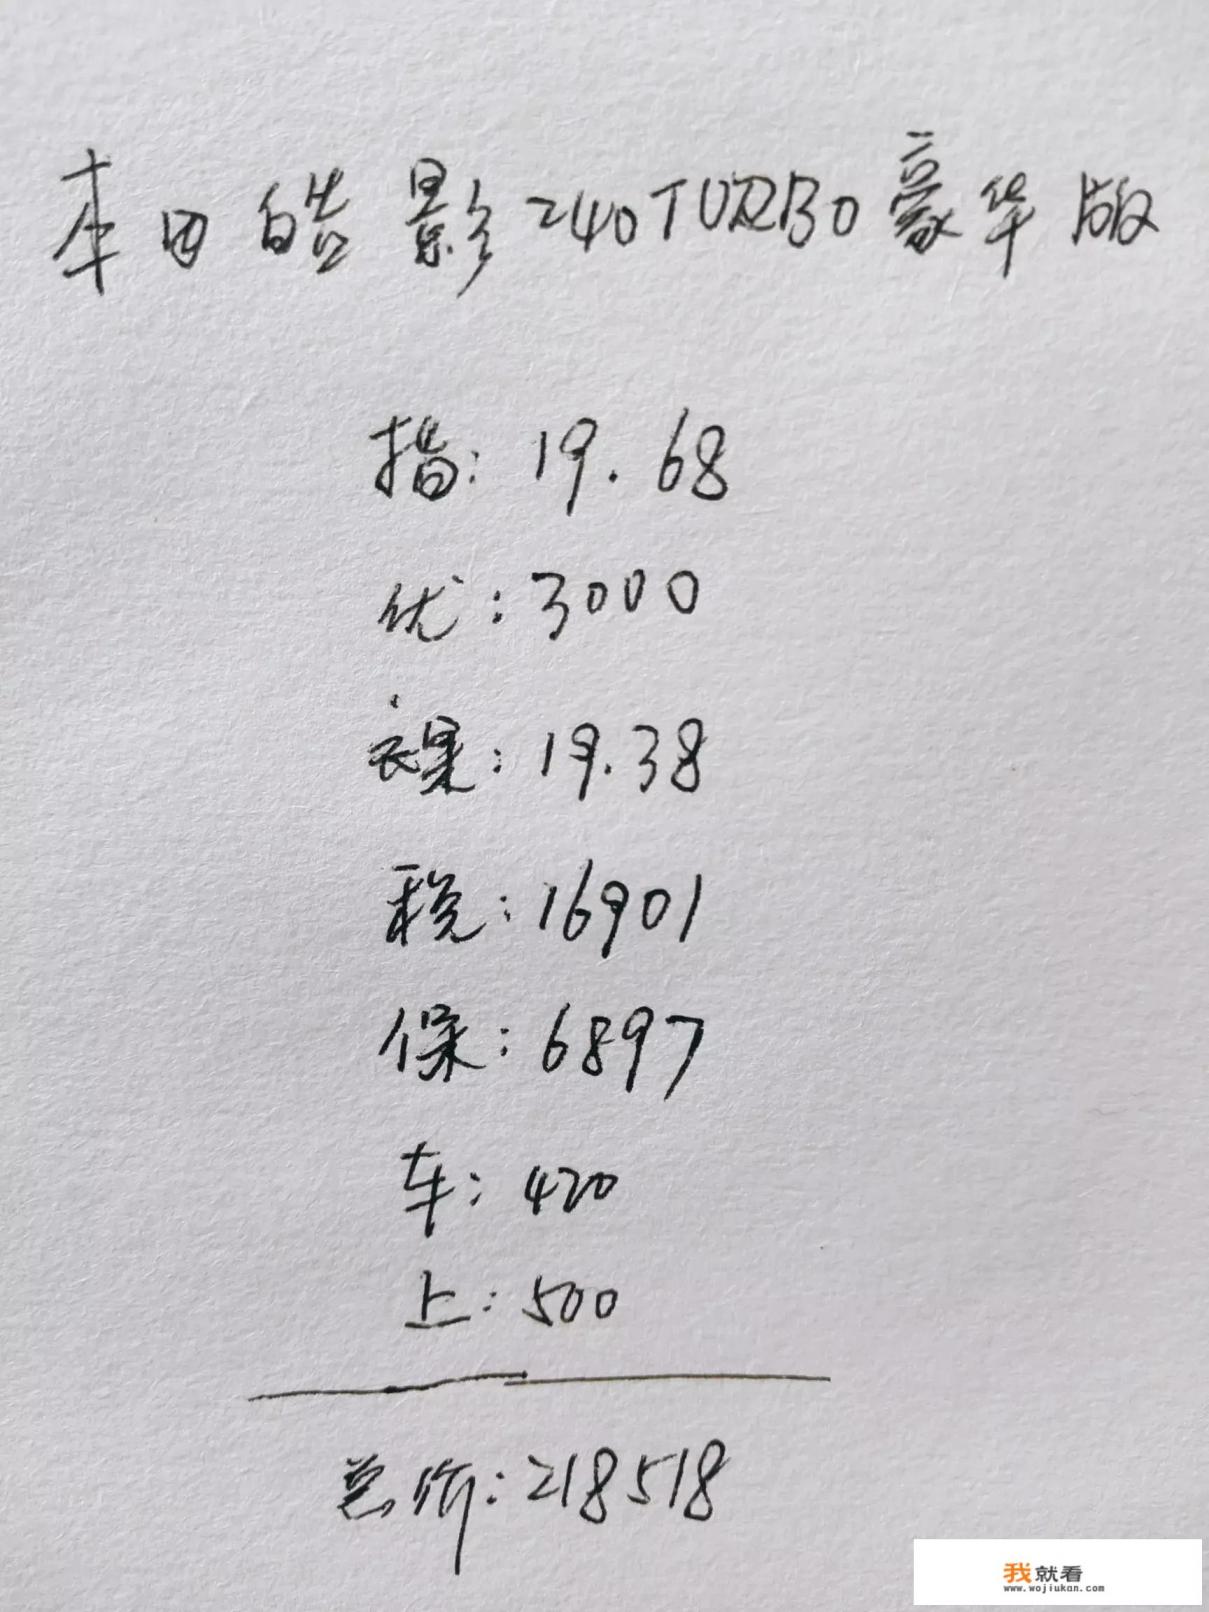 本田皓影240TURBO豪华版
指：19.68
优：3000
裸：19.38
税：16901
保：6897
车：420
上：500
总价：218518
我就看
www.wojiukan.com